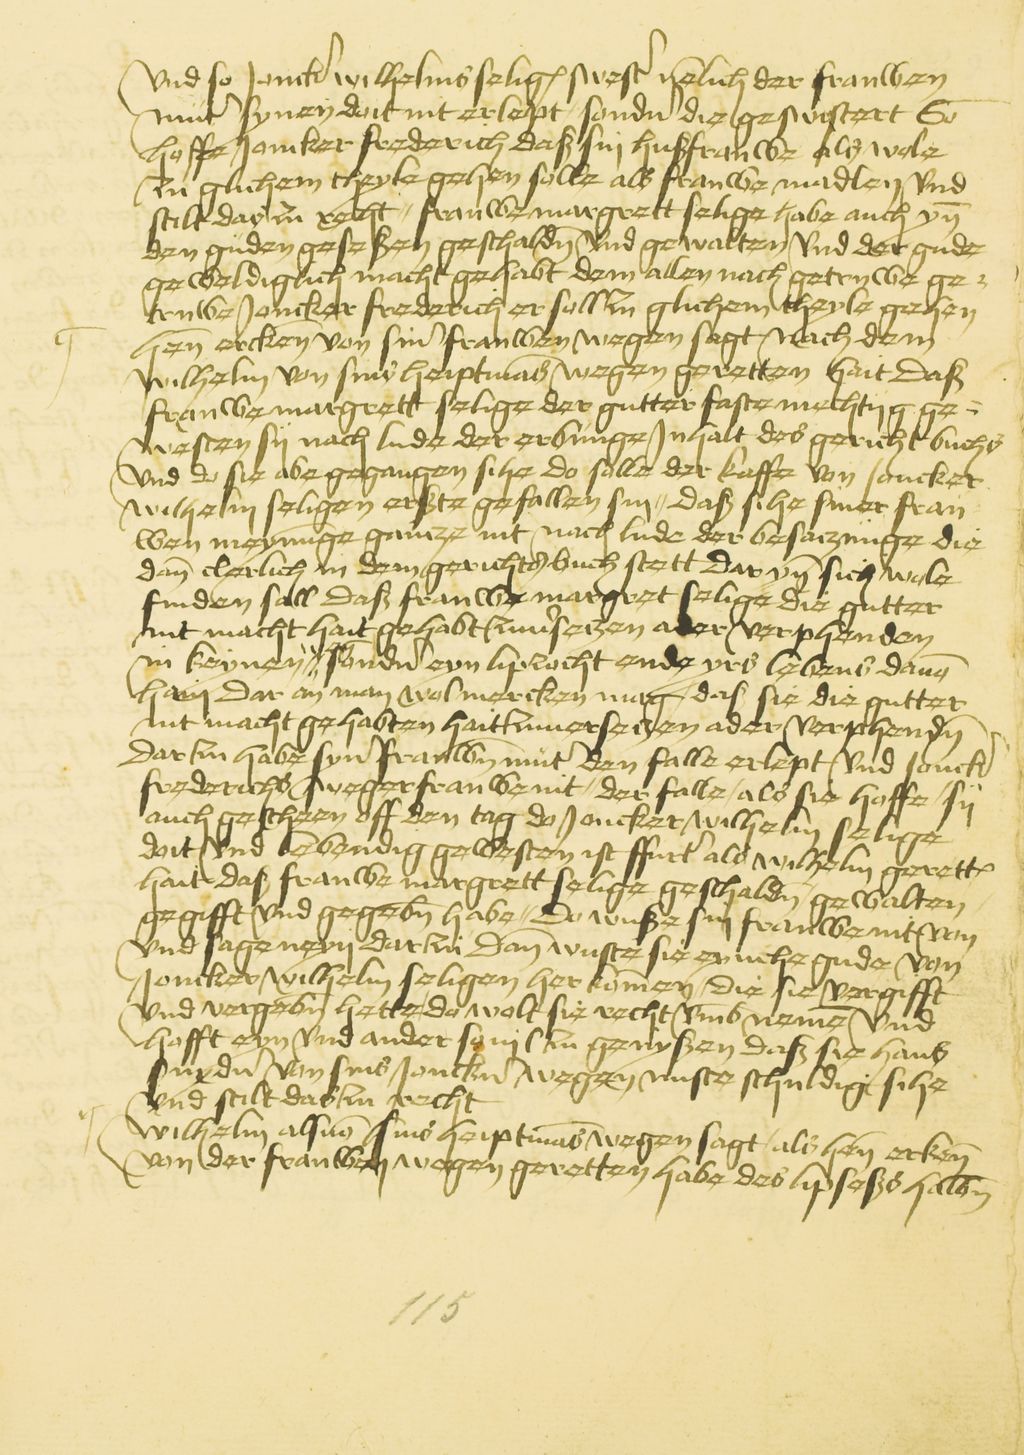 Vnd so Jonck(er) wilhelms selig(en) swest(er) n(em)elich der frauwen
mut(er) synen doit nit erlept sond(er)n die geswistert So
hoffe Joncker frederich daß sin hußfrauwe als wole
zu glichem theyle gehen solle als frauwe madlen vnd
stilt das zu recht frauwe margrett selige habe auch yn
den guden geseßen geschald(e)n vnd gewalten vnd der gude
geweldiglich macht gehabt dem allen nach getruwe ge
truwe Joncker frederich er soll zu glichem theyle gehen
hen ercken von sin(er) frauwen wegen sagt nach dem
wilhelm von sins heiptma(n)s wegen geretten hait Daß
frauwe margrett selige der gutter faste mechtig ge
westen sy nach lude der erbunge Inhalt des gericht buchs
Vnd do sie abe gegangen sihe do solle der kaffe von Joncker
wilhelm seligen erßte gefallen sin daß sihe siner frau
wen meynunge gantze nit nach lude der besatzunge die
dan clerlich in dem gerichts buch stett Dar yn sich wole
finden sall Daß frauwe margret selige die gutter
nit macht hait gehabt zuu(er)setzen ader verphenden
in keynen sond(er)n eyn lipzocht ende yrs lebens dauo(n)
hain Dar an man wol mercken mag daß sie die gutter
nit macht gehabten hait zuuersetzen ader verphend(e)n
Dar zu habe syn(er) frauw(e)n mut(er) den falle erlept vnd Jonck(er)
frederichs sweger frauwe nit der falle als sie hoffe sy
auch gescheen off den tag do Joncker wilhelm selige
doit vnd lebendig gewesten ist ffurt(er) als wilhelm gerett(en)
hait daß frauwe margrett selige geschald(e)n gewalten
gegifft vnd gegeb(e)n habe Do wuße sin frauwe nit von
vnd sage neyn dar zu Dan wuste sie eyniche gude von
Joncker wilhelm seligen her komen die sie vergifft
vnd vergeb(e)n hette do wolt sie recht vmb neme(n) vnd
hofft eyn vnd ander so vil zu genyßen daß sie hans
snyd(er)n von sins Jonck(er)n wegen nuste schuldig sihe
vnd stilt das zu recht
wilhelm alsuo(r) sins heiptma(n)s wegen sagt als hen ercken
von der frauwen wegen geretten habe des lipseßs halb(e)n
115